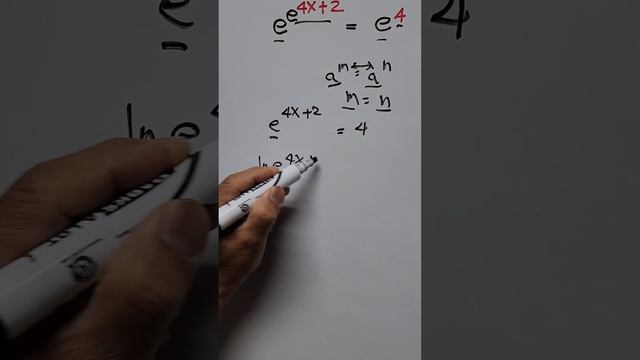 e^e^4x+2 = e^4
a^m = a^n
m = n
e^4x+2 = 4
ln e^4x